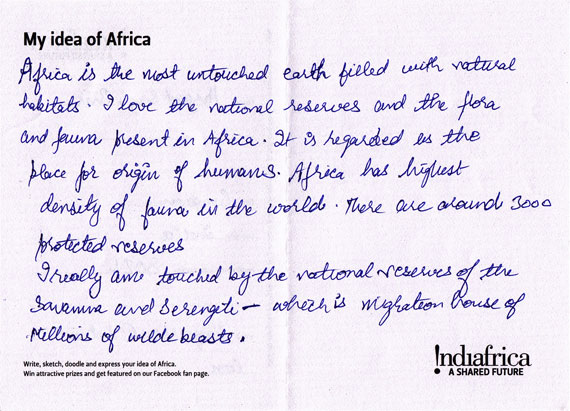 My idea of Africa
Africa is the most untouched earth filled with natural
habitats. I love the national reserves and the flora
and fauna present in Africa. It is regarded as the
place for origin of humans. Africa has highest
density of fauna in the world. There are around 3000
protected reserves
I really am touched by the national reserves of the
Savanna and Serengiti – which is Migration house of
Millions of wilde beasts.
Write, sketch, doodle and express your idea of Africa.
Win attractive prizes and get featured on our Facebook fan page.
Indiafrica
A SHARED FUTURE